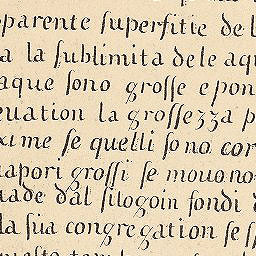 parente ſuperfitie de l
a la ſublimita dele aqu
aque ſono groſſe e pon
euation la groſſezza p
xime ſe quelli ſono cor
uapori groſſi ſe mouono
uade dal ſilogoin fondi d
la ſua congregation ſe ſp